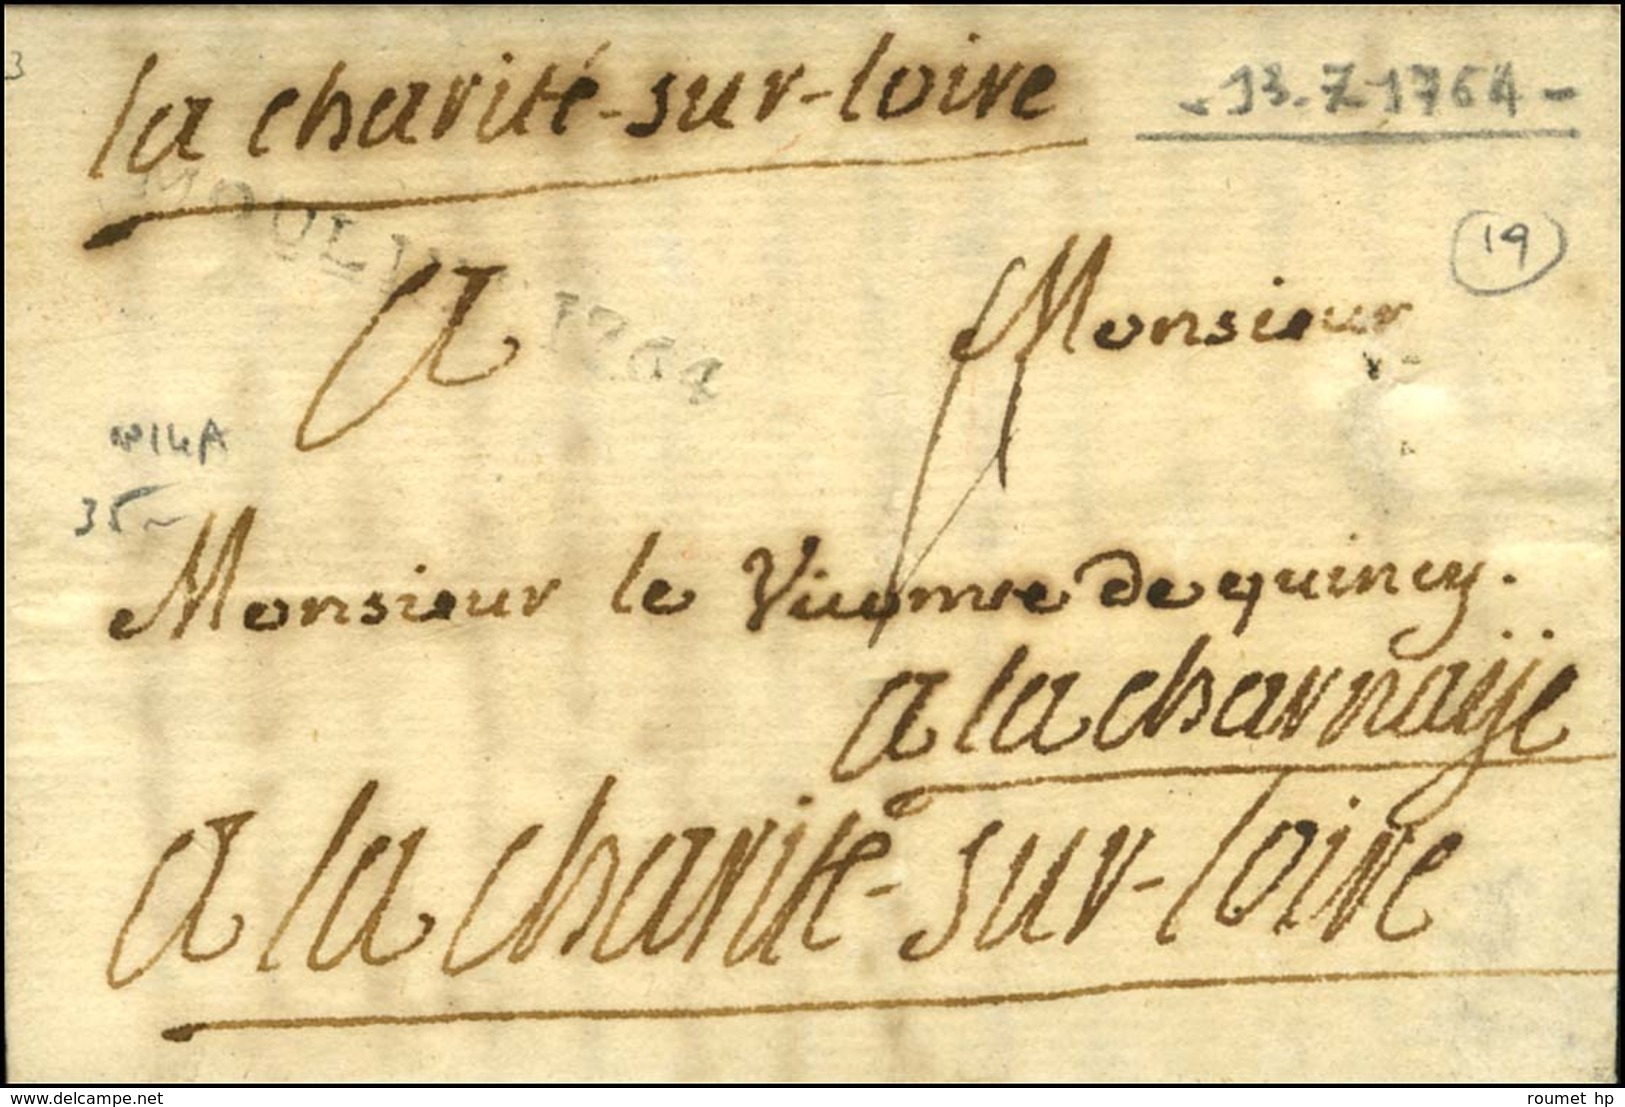 3
la charité-sur-loire
- 13.7.1764 -
MOULINS 1764
19
A Monsieur
N°14A
35-
Monsieur le Vicomte de quincy.
a la charnaÿe
a la charité-sur-loire
delcampe.net
roumet_hp